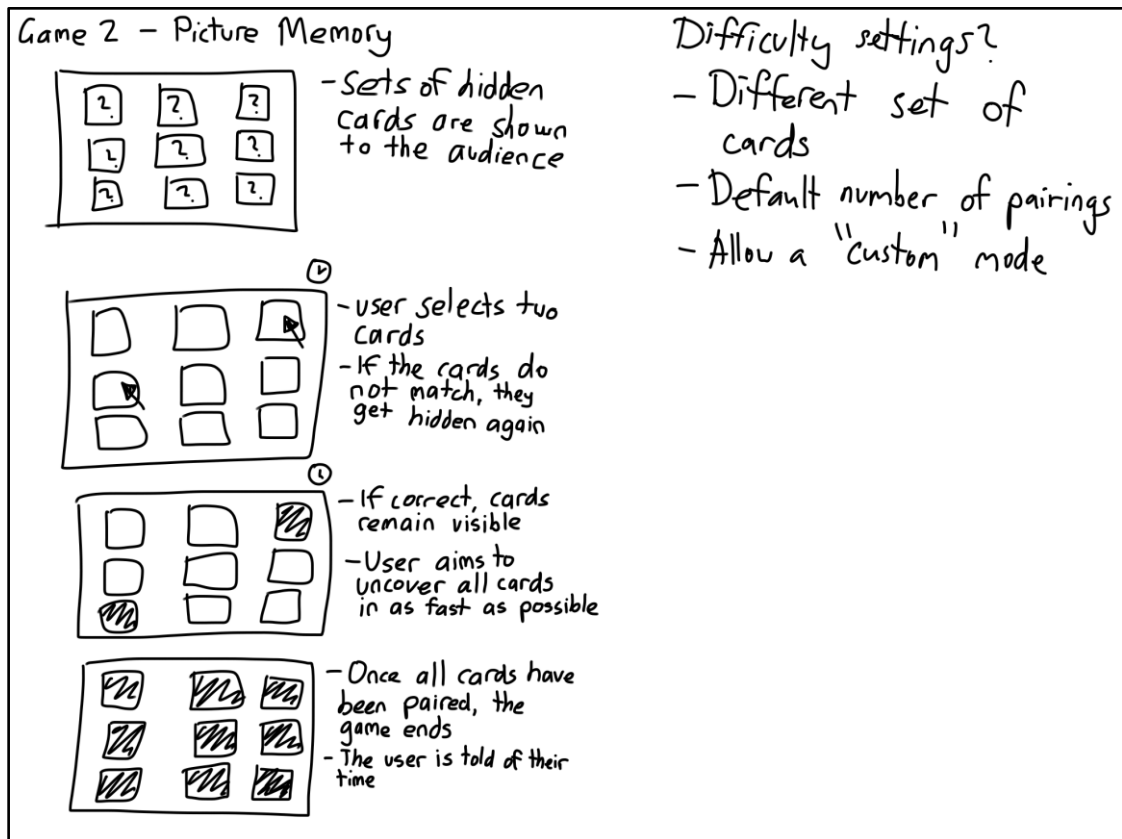 Game 2 - Picture Memory
? ? ?
? ? ?
? ? ?
- Sets of hidden
cards are shown
to the audience
- user selects two
cards
- If the cards do
not match, they
get hidden again
- If correct, cards
remain visible
- User aims to
uncover all cards
in as fast as possible
- Once all cards have
been paired, the
game ends
- The user is told of their
time
Difficulty settings?
- Different set of
cards
- Default number of pairings
- Allow a "custom" mode